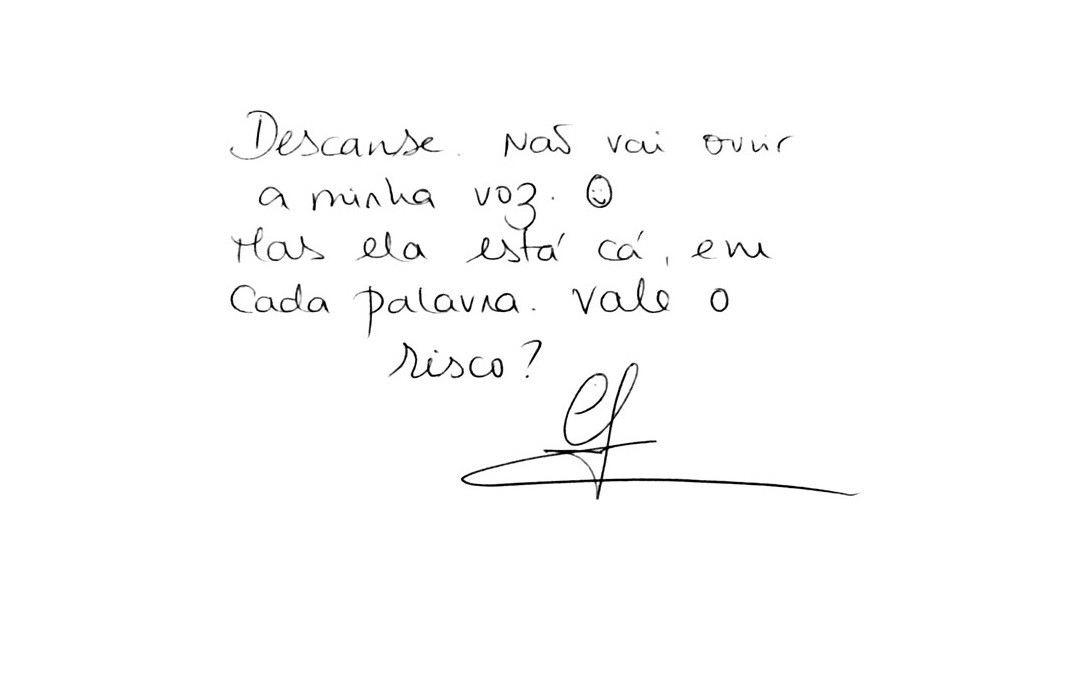 Descanse. Não vai ouvir
a minha voz. ☺
Mas ela está cá, em
Cada palavra. Vale o
risco?